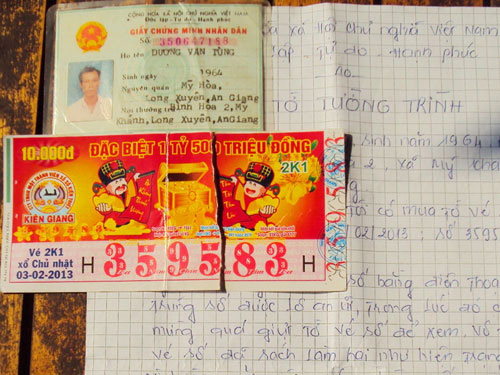 CỘNG HÒA XÃ HỘI CHỦ NGHĨA VIỆT NAM
Độc lập - Tự do - Hạnh phúc
GIẤY CHỨNG MINH NHÂN DÂN
Số 350647188
Họ tên DƯƠNG VĂN TÙNG
Sinh ngày 1964
Nguyên quán Mỹ Hòa,
Long Xuyên, An Giang
Nơi thường trú Bình Hòa 2, Mỹ
Khánh, Long Xuyên, An Giang
10.000đ ĐẶC BIỆT 1 TỶ 500 TRIỆU ĐỒNG
2K1
KIÊN GIANG
Vé 2K1
xổ Chủ nhật
03-02-2013
H 359583 H
xã hội chủ nghĩa Việt Nam
lập tự do Hạnh phúc
TỜ TƯỜNG TRÌNH
sinh năm 1964
2 xã Mỹ Khá
có mua tờ vé
02/2013 số 3595
số bằng điện thoạ
Trúng số được lô an ủi, Trong lúc đó
mừng quá giựt tờ vé số để xem. Vô
vé số đã rách làm hai như hiện trạng